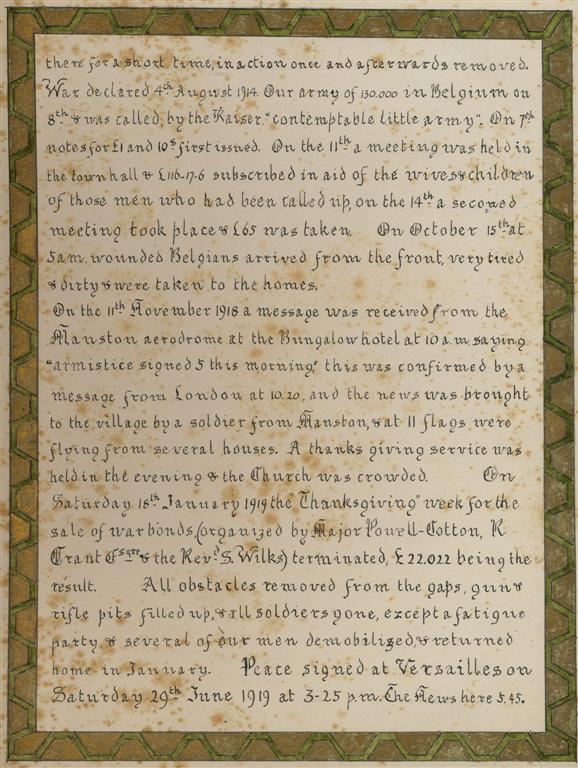 there for a short time, in action once and afterwards removed.
War declared 4th August 1914. Our army of 130,000 in Belgium on
8th & was called, by the Kaiser, "contemptable little army". On 7th
notes for £1 and 10s first issued. On the 11th a meeting was held in
the town hall & £116-17-6 subscribed in aid of the wives & children
of those men who had been called up, on the 14th a second
meeting took place & £65 was taken. On October 15th at
5am. wounded Belgians arrived from the front, very tired
& dirty & were taken to the homes.
On the 11th November 1918 a message was received from the
Manston aerodrome at the Bungalow hotel at 10 a.m. saying
"armistice signed 5 this morning," this was confirmed by a
message from London at 10.20, and the news was brought
to the village by a soldier from Manston, & at 11 flags were
flying from several houses. A thanks giving service was
held in the evening & the Church was crowded. On
Saturday 18th January 1919 the "Thanksgiving" week for the
sale of war bonds, (organized by Major Powell-Cotton, K
Grant Esqre & the Revd S. Wilks) terminated, £22,022 being the
result. All obstacles removed from the gaps, gun &
rifle pits filled up, & all soldiers gone, except a fatigue
party, & several of our men demobilized, & returned
home in January. Peace signed at Versailles on
Saturday 29th June 1919 at 3-25 p.m. The News here 5.45.